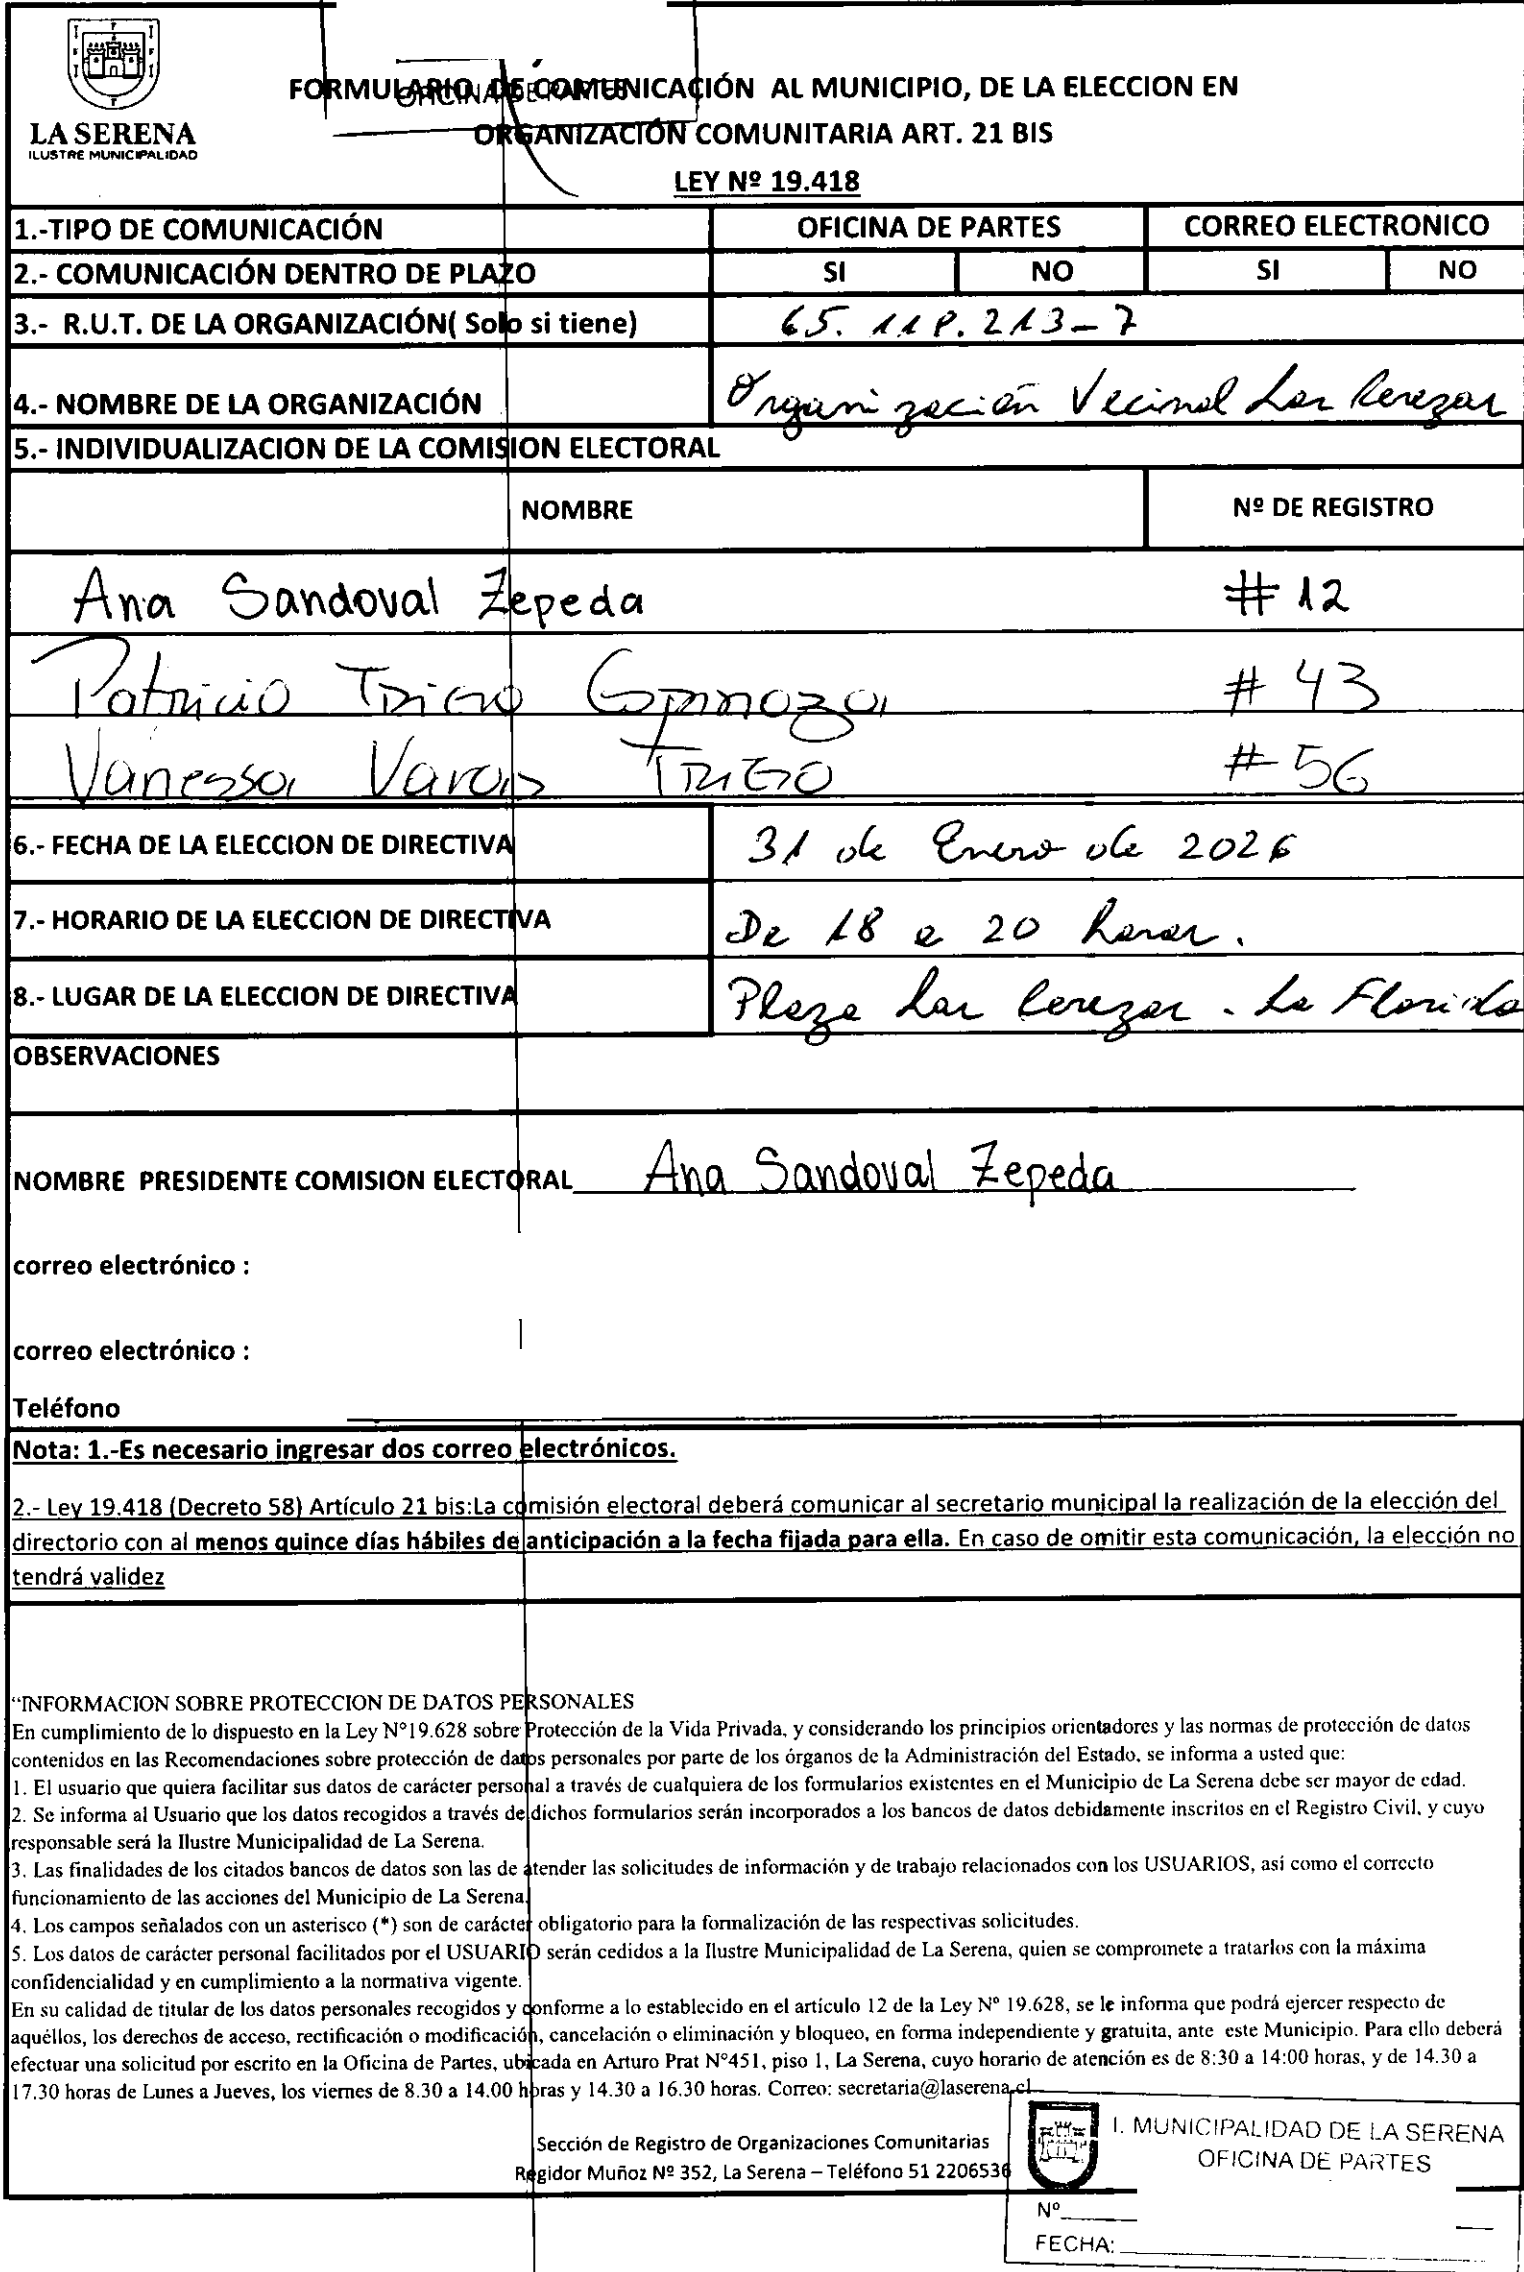 LA SERENA
ILUSTRE MUNICIPALIDAD
OFICINA DE PARTES
FORMULARIO DE COMUNICACIÓN AL MUNICIPIO, DE LA ELECCION EN
ORGANIZACIÓN COMUNITARIA ART. 21 BIS
LEY Nº 19.418
1.-TIPO DE COMUNICACIÓN OFICINA DE PARTES CORREO ELECTRONICO
2.- COMUNICACIÓN DENTRO DE PLAZO SI NO SI NO
3.- R.U.T. DE LA ORGANIZACIÓN( Solo si tiene) 65. 118. 213-7
4.- NOMBRE DE LA ORGANIZACIÓN Organización Vecinal Las Cerezas
5.- INDIVIDUALIZACION DE LA COMISION ELECTORAL
NOMBRE Nº DE REGISTRO
Ana Sandoval Zepeda #12
Patricio Trigo Espinoza #43
Vanessa Varas Trigo #56
6.- FECHA DE LA ELECCION DE DIRECTIVA 31 de Enero de 2026
7.- HORARIO DE LA ELECCION DE DIRECTIVA De 18 a 20 horas.
8.- LUGAR DE LA ELECCION DE DIRECTIVA Plaza Las Cerezas - La Florida
OBSERVACIONES
NOMBRE PRESIDENTE COMISION ELECTORAL Ana Sandoval Zepeda
correo electrónico :
correo electrónico :
Teléfono
Nota: 1.-Es necesario ingresar dos correo electrónicos.
2.- Ley 19.418 (Decreto 58) Artículo 21 bis:La comisión electoral deberá comunicar al secretario municipal la realización de la elección del
directorio con al menos quince días hábiles de anticipación a la fecha fijada para ella. En caso de omitir esta comunicación, la elección no
tendrá validez
“INFORMACION SOBRE PROTECCION DE DATOS PERSONALES
En cumplimiento de lo dispuesto en la Ley N°19.628 sobre Protección de la Vida Privada, y considerando los principios orientadores y las normas de protección de datos
contenidos en las Recomendaciones sobre protección de datos personales por parte de los órganos de la Administración del Estado, se informa a usted que:
1. El usuario que quiera facilitar sus datos de carácter personal a través de cualquiera de los formularios existentes en el Municipio de La Serena debe ser mayor de edad.
2. Se informa al Usuario que los datos recogidos a través de dichos formularios serán incorporados a los bancos de datos debidamente inscritos en el Registro Civil, y cuyo
responsable será la Ilustre Municipalidad de La Serena.
3. Las finalidades de los citados bancos de datos son las de atender las solicitudes de información y de trabajo relacionados con los USUARIOS, así como el correcto
funcionamiento de las acciones del Municipio de La Serena.
4. Los campos señalados con un asterisco (*) son de carácter obligatorio para la formalización de las respectivas solicitudes.
5. Los datos de carácter personal facilitados por el USUARIO serán cedidos a la Ilustre Municipalidad de La Serena, quien se compromete a tratarlos con la máxima
confidencialidad y en cumplimiento a la normativa vigente.
En su calidad de titular de los datos personales recogidos y conforme a lo establecido en el artículo 12 de la Ley Nº 19.628, se le informa que podrá ejercer respecto de
aquéllos, los derechos de acceso, rectificación o modificación, cancelación o eliminación y bloqueo, en forma independiente y gratuita, ante este Municipio. Para ello deberá
efectuar una solicitud por escrito en la Oficina de Partes, ubicada en Arturo Prat N°451, piso 1, La Serena, cuyo horario de atención es de 8:30 a 14:00 horas, y de 14.30 a
17.30 horas de Lunes a Jueves, los viernes de 8.30 a 14.00 horas y 14.30 a 16.30 horas. Correo: secretaria@laserena.cl
Sección de Registro de Organizaciones Comunitarias
Regidor Muñoz Nº 352, La Serena – Teléfono 51 2206536
I. MUNICIPALIDAD DE LA SERENA
OFICINA DE PARTES
Nº
FECHA: